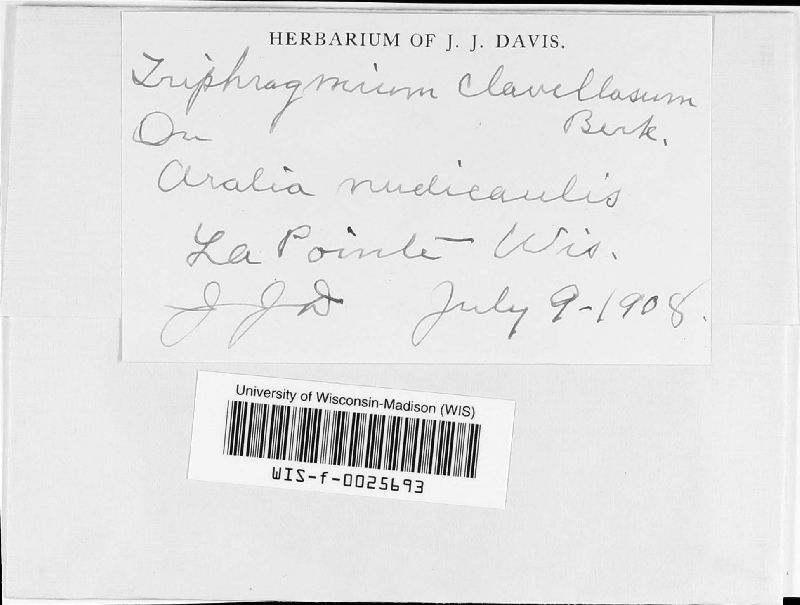 HERBARIUM OF J. J. DAVIS.
Triphragmium clavellosum
Berk.
On
Aralia nudicaulis
La Pointe Wis.
J J D July 9-1908.
University of Wisconsin-Madison (WIS)
WIS-f-0025693